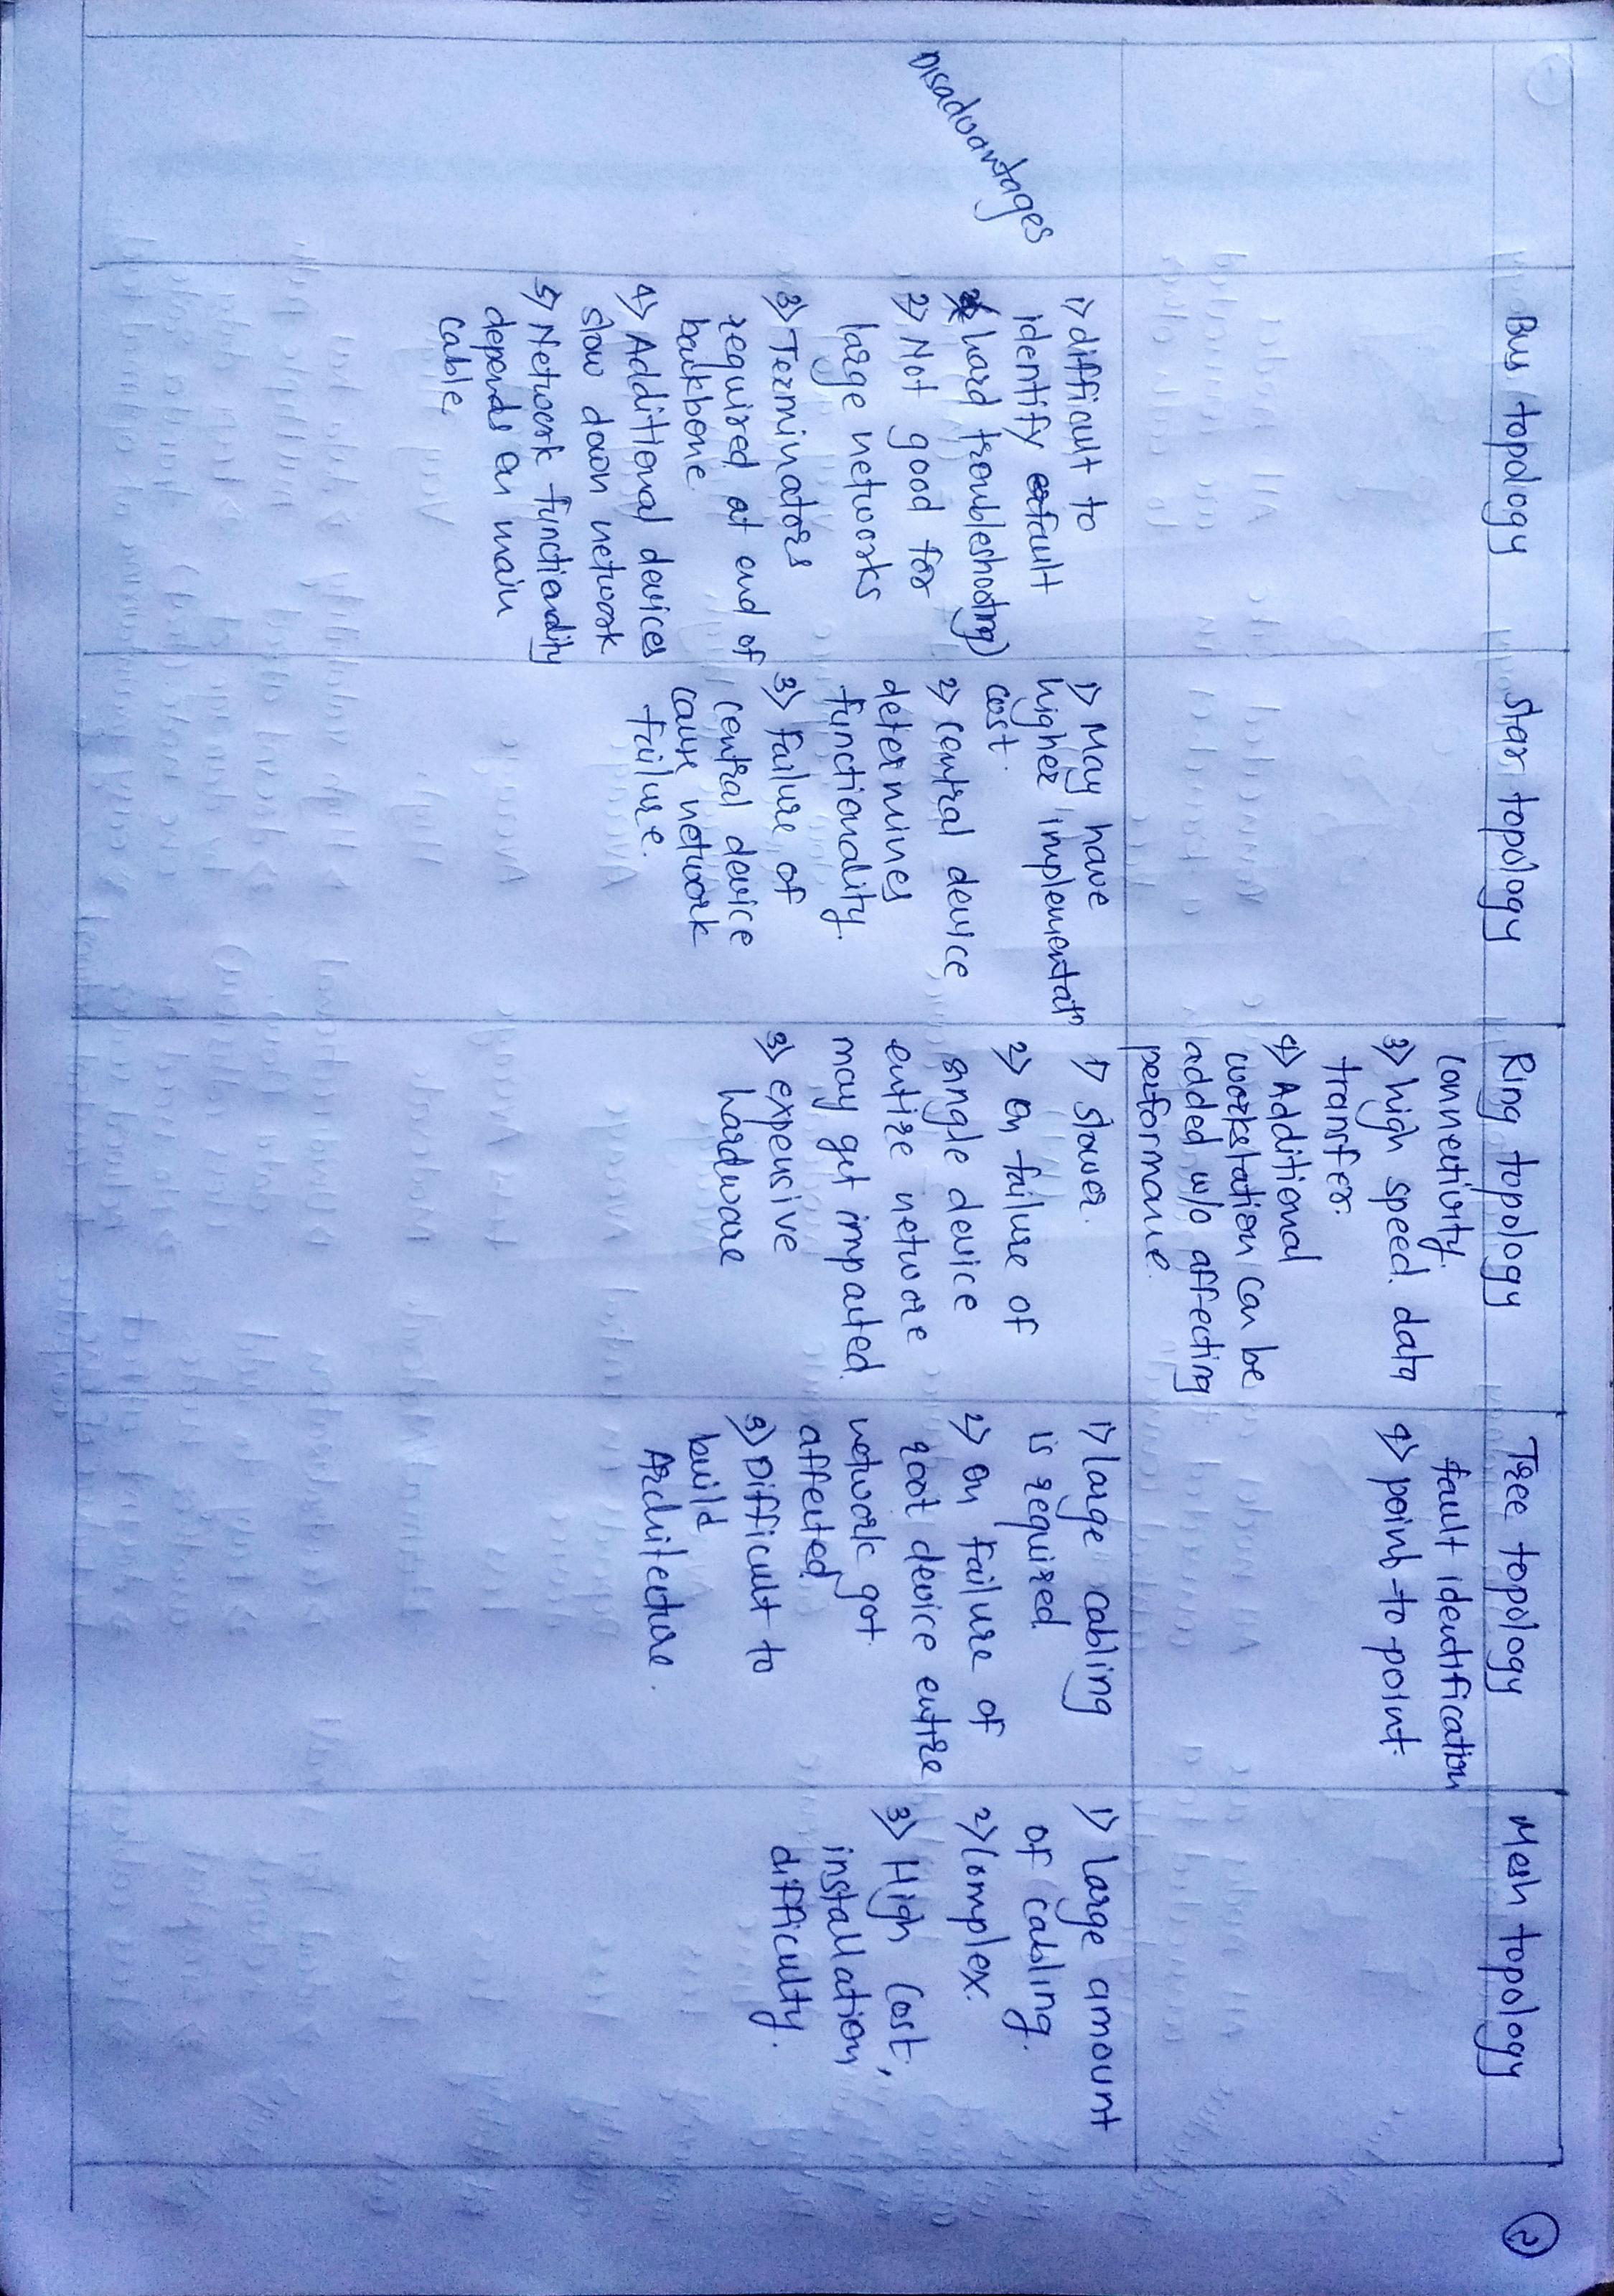 2
Bus topology
Star topology
Ring topology
Tree topology
Mesh topology
connectivity.
3) high speed data
transfer.
4) Additional
workstation can be
added w/o affecting
performance.
fault identification
4) point-to-point.
Disadvantages
1) difficult to
identify fault
(hard troubleshooting)
2) Not good for
large networks
3) Terminators
required at end of
backbone.
4) Additional devices
slow down network
5) Network functionality
depends on main
cable.
1) May have
higher implementatn
cost.
2) central device
determines
functionality.
3) Failure of
central device
cause network
failure.
1) slower.
2) On failure of
single device
entire network
may get impacted.
3) expensive
hardware
1) large cabling
is required.
2) On failure of
root device entire
network got
affected.
3) Difficult to
build
Architecture.
1) Large amount
of cabling.
2) Complex.
3) High Cost,
installation
difficulty.